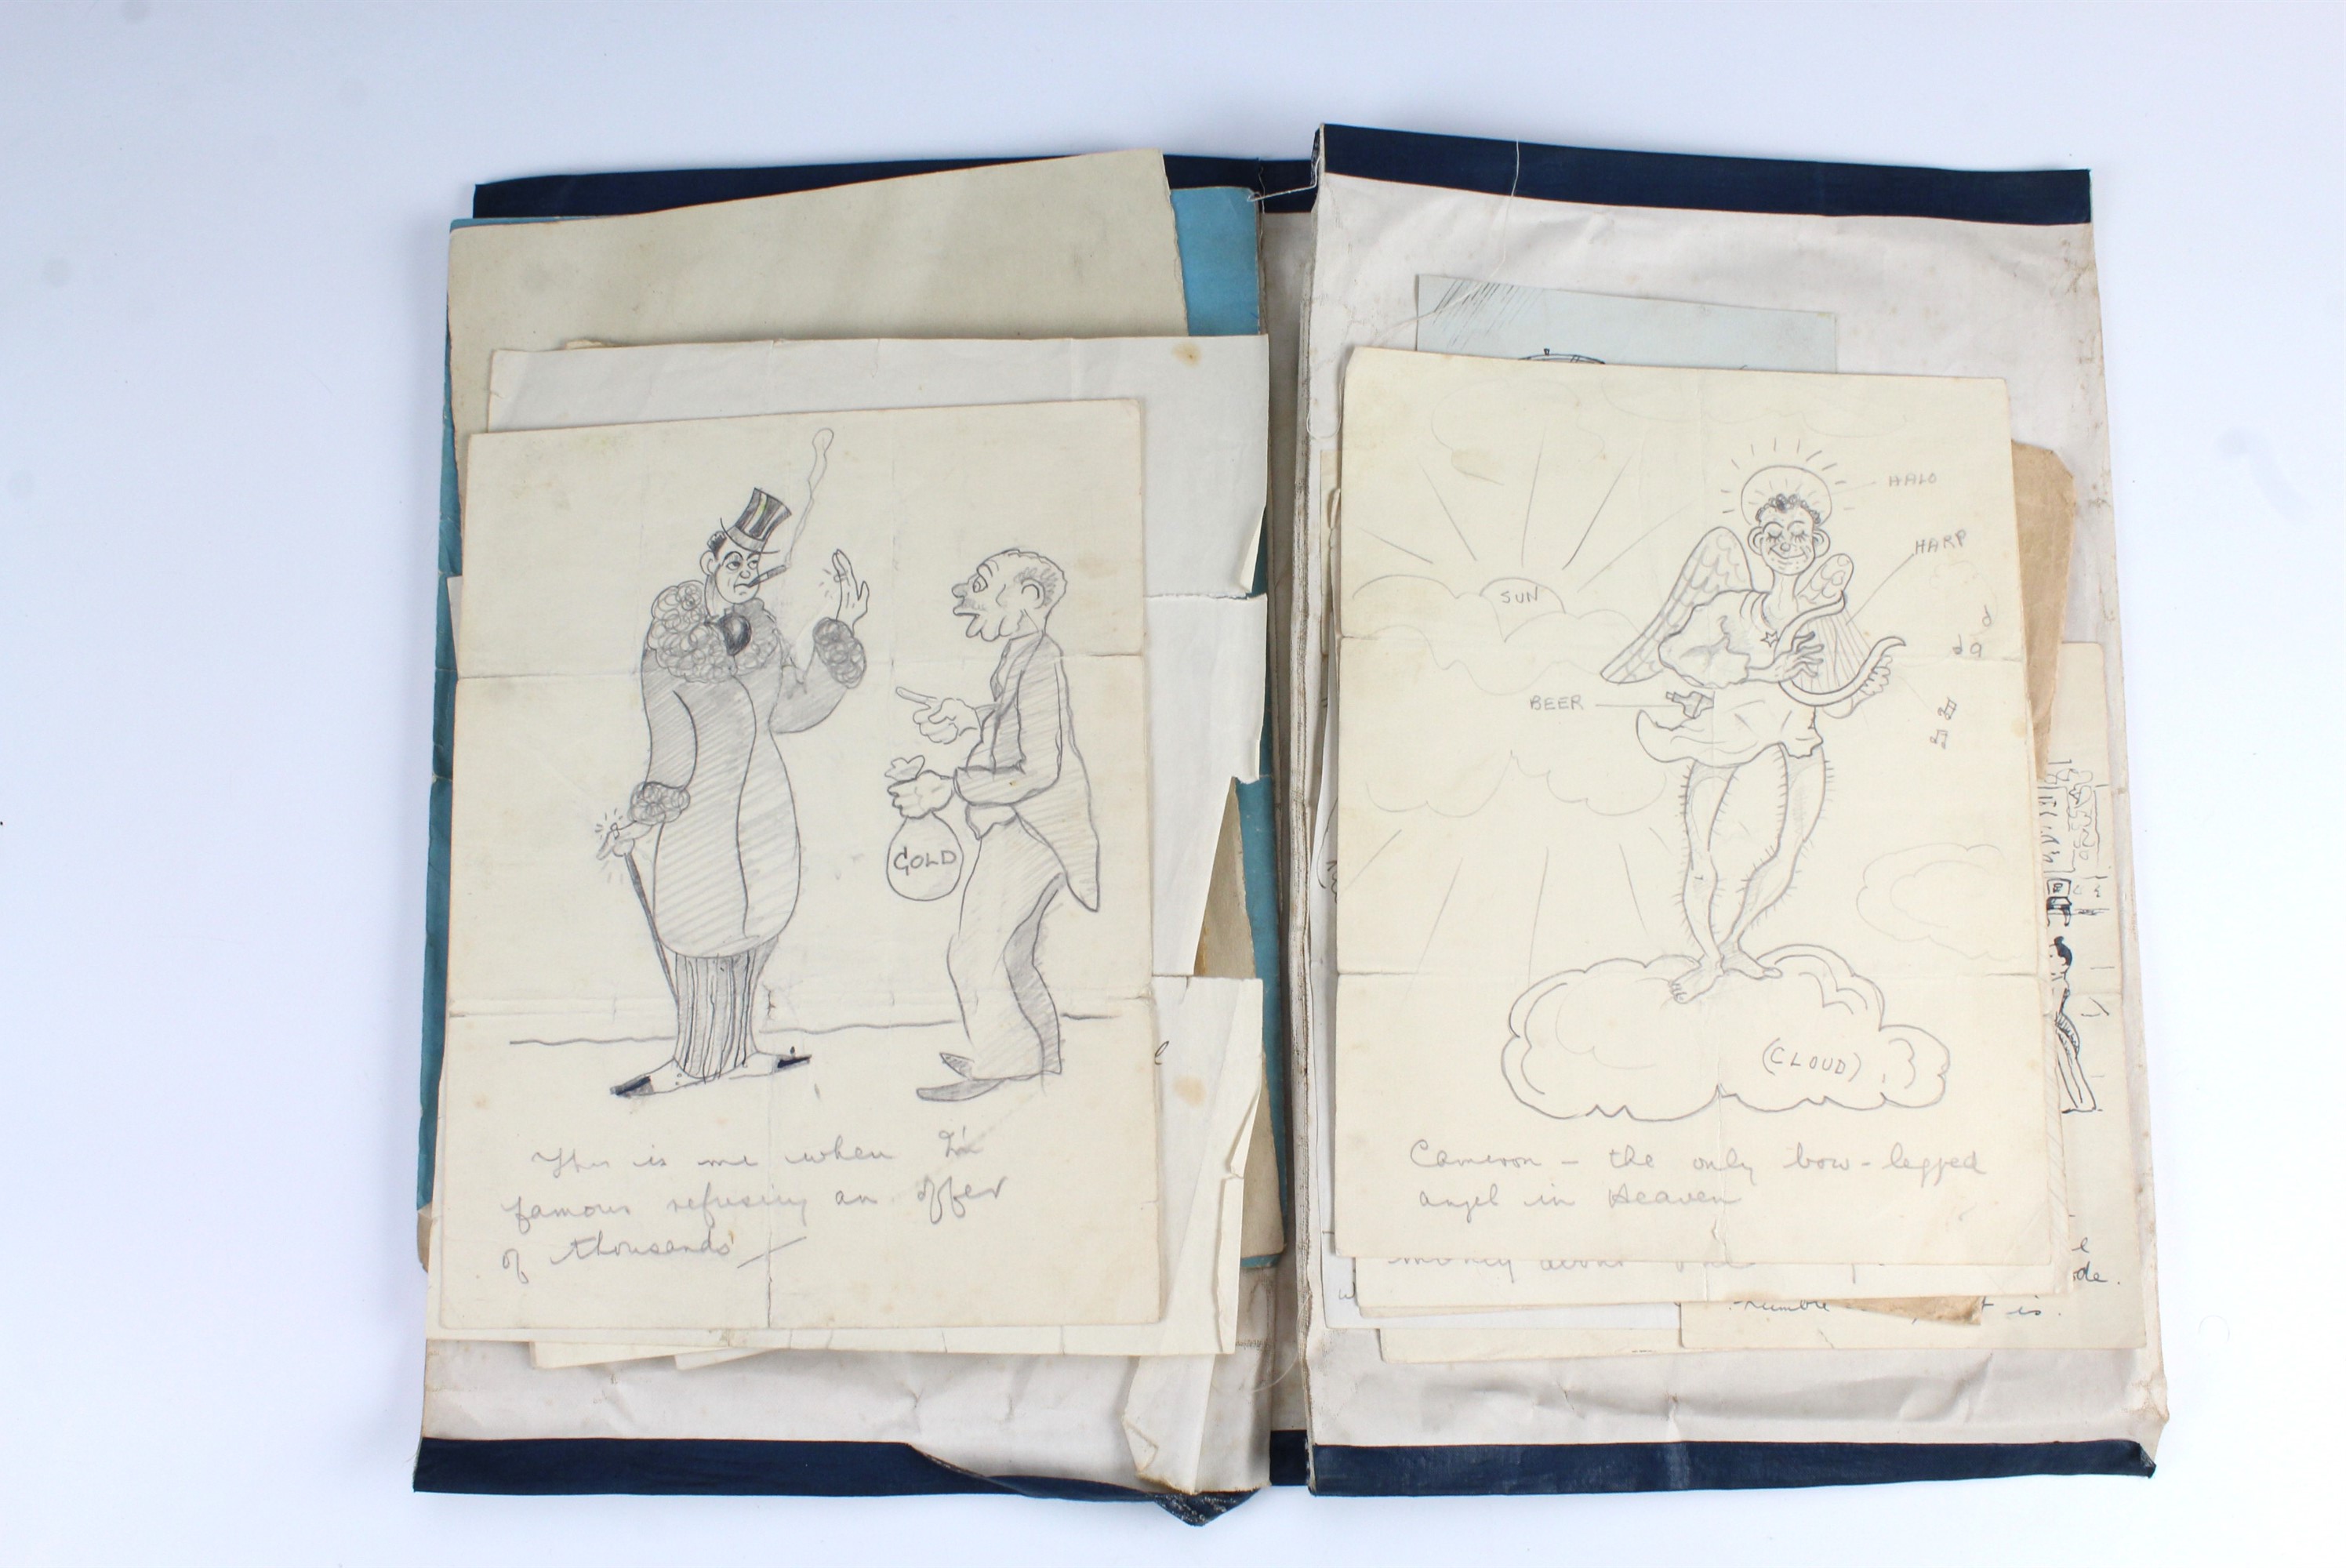 GOLD
This is me when I'm
famous refusing an offer
of thousands
HALO
HARP
SUN
BEER
(CLOUD)
Cameron - the only bow-legged
angel in Heaven
money about
humble
t is.
de.